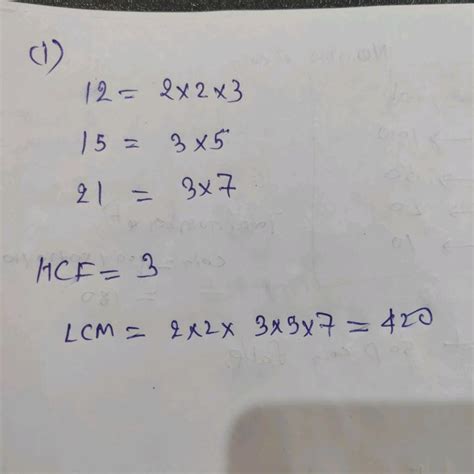 (i)
12 = 2×2×3
15 = 3×5
21 = 3×7
HCF = 3
LCM = 2×2× 3×5×7 = 420